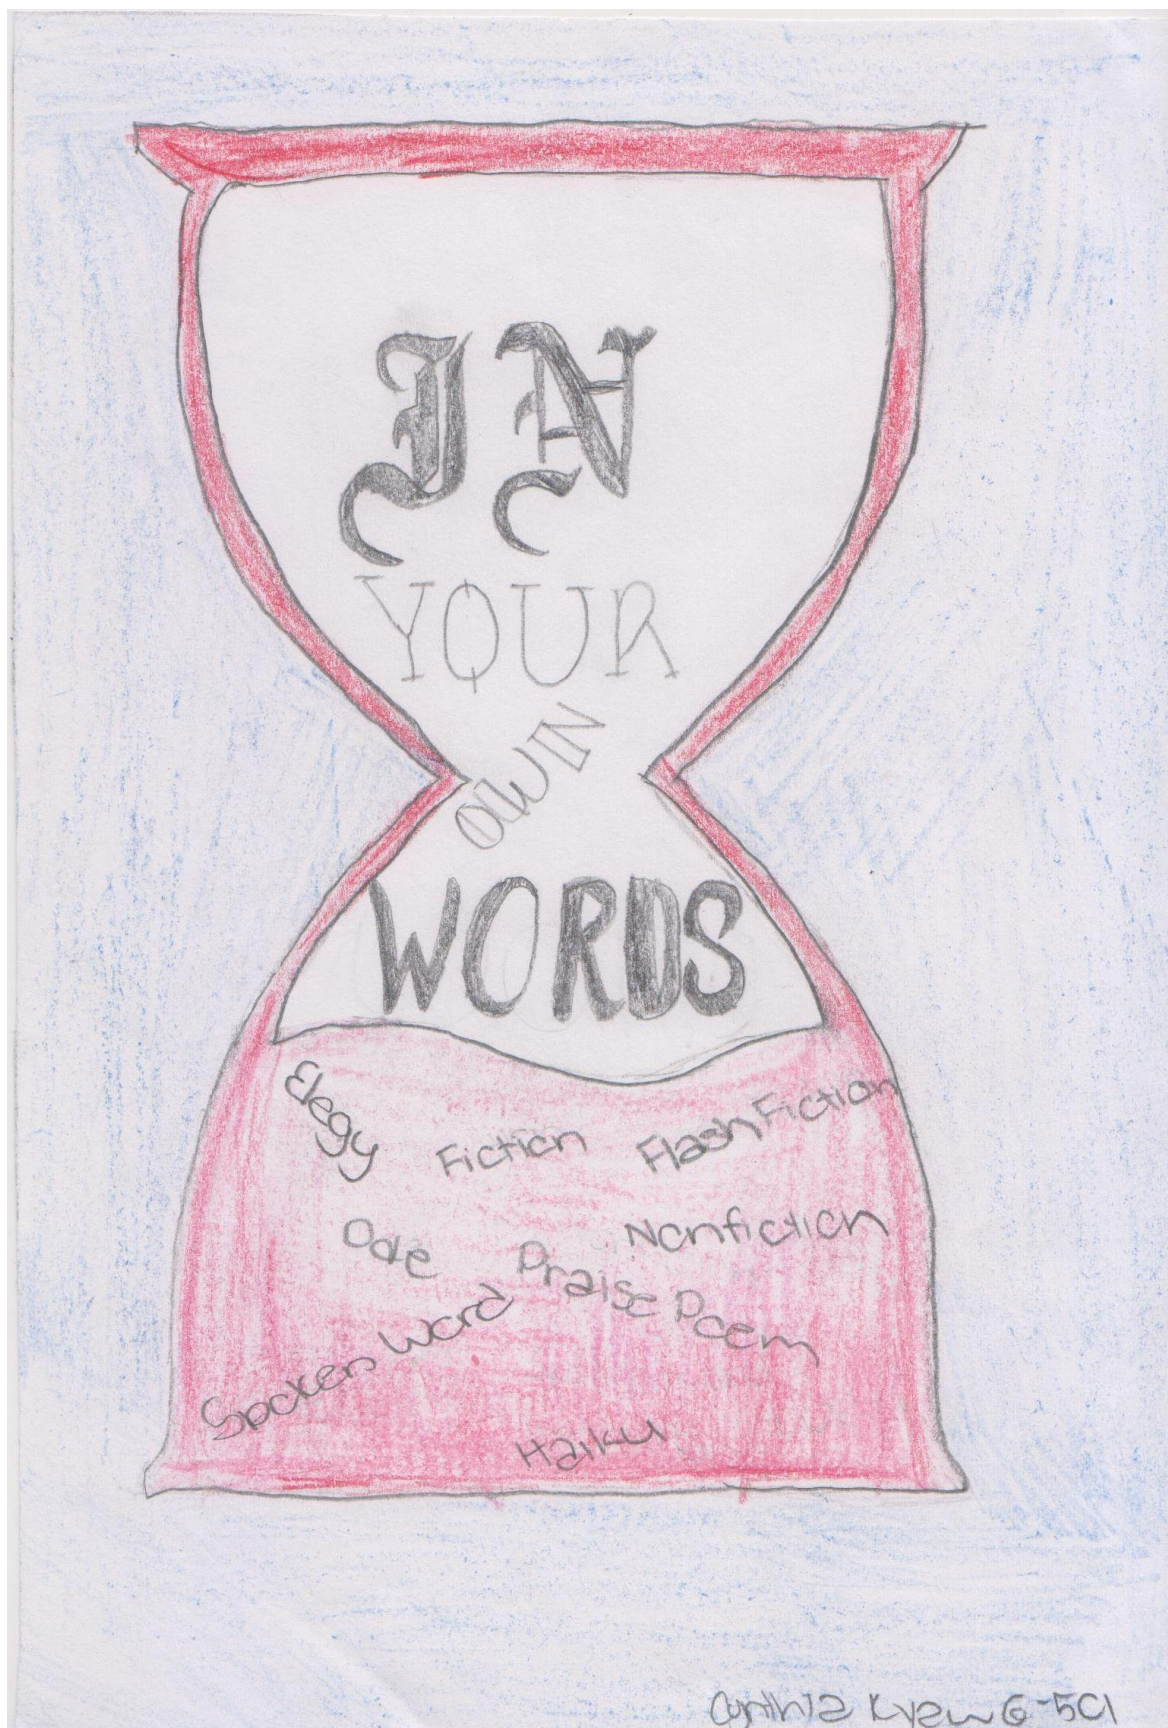 IN
YOUR
OWN
WORDS
Elegy
Fiction
Flash Fiction
Ode
Nonfiction
Praise Poem
Spoken Word
Haiku
Cynthia Kyaw 6-501